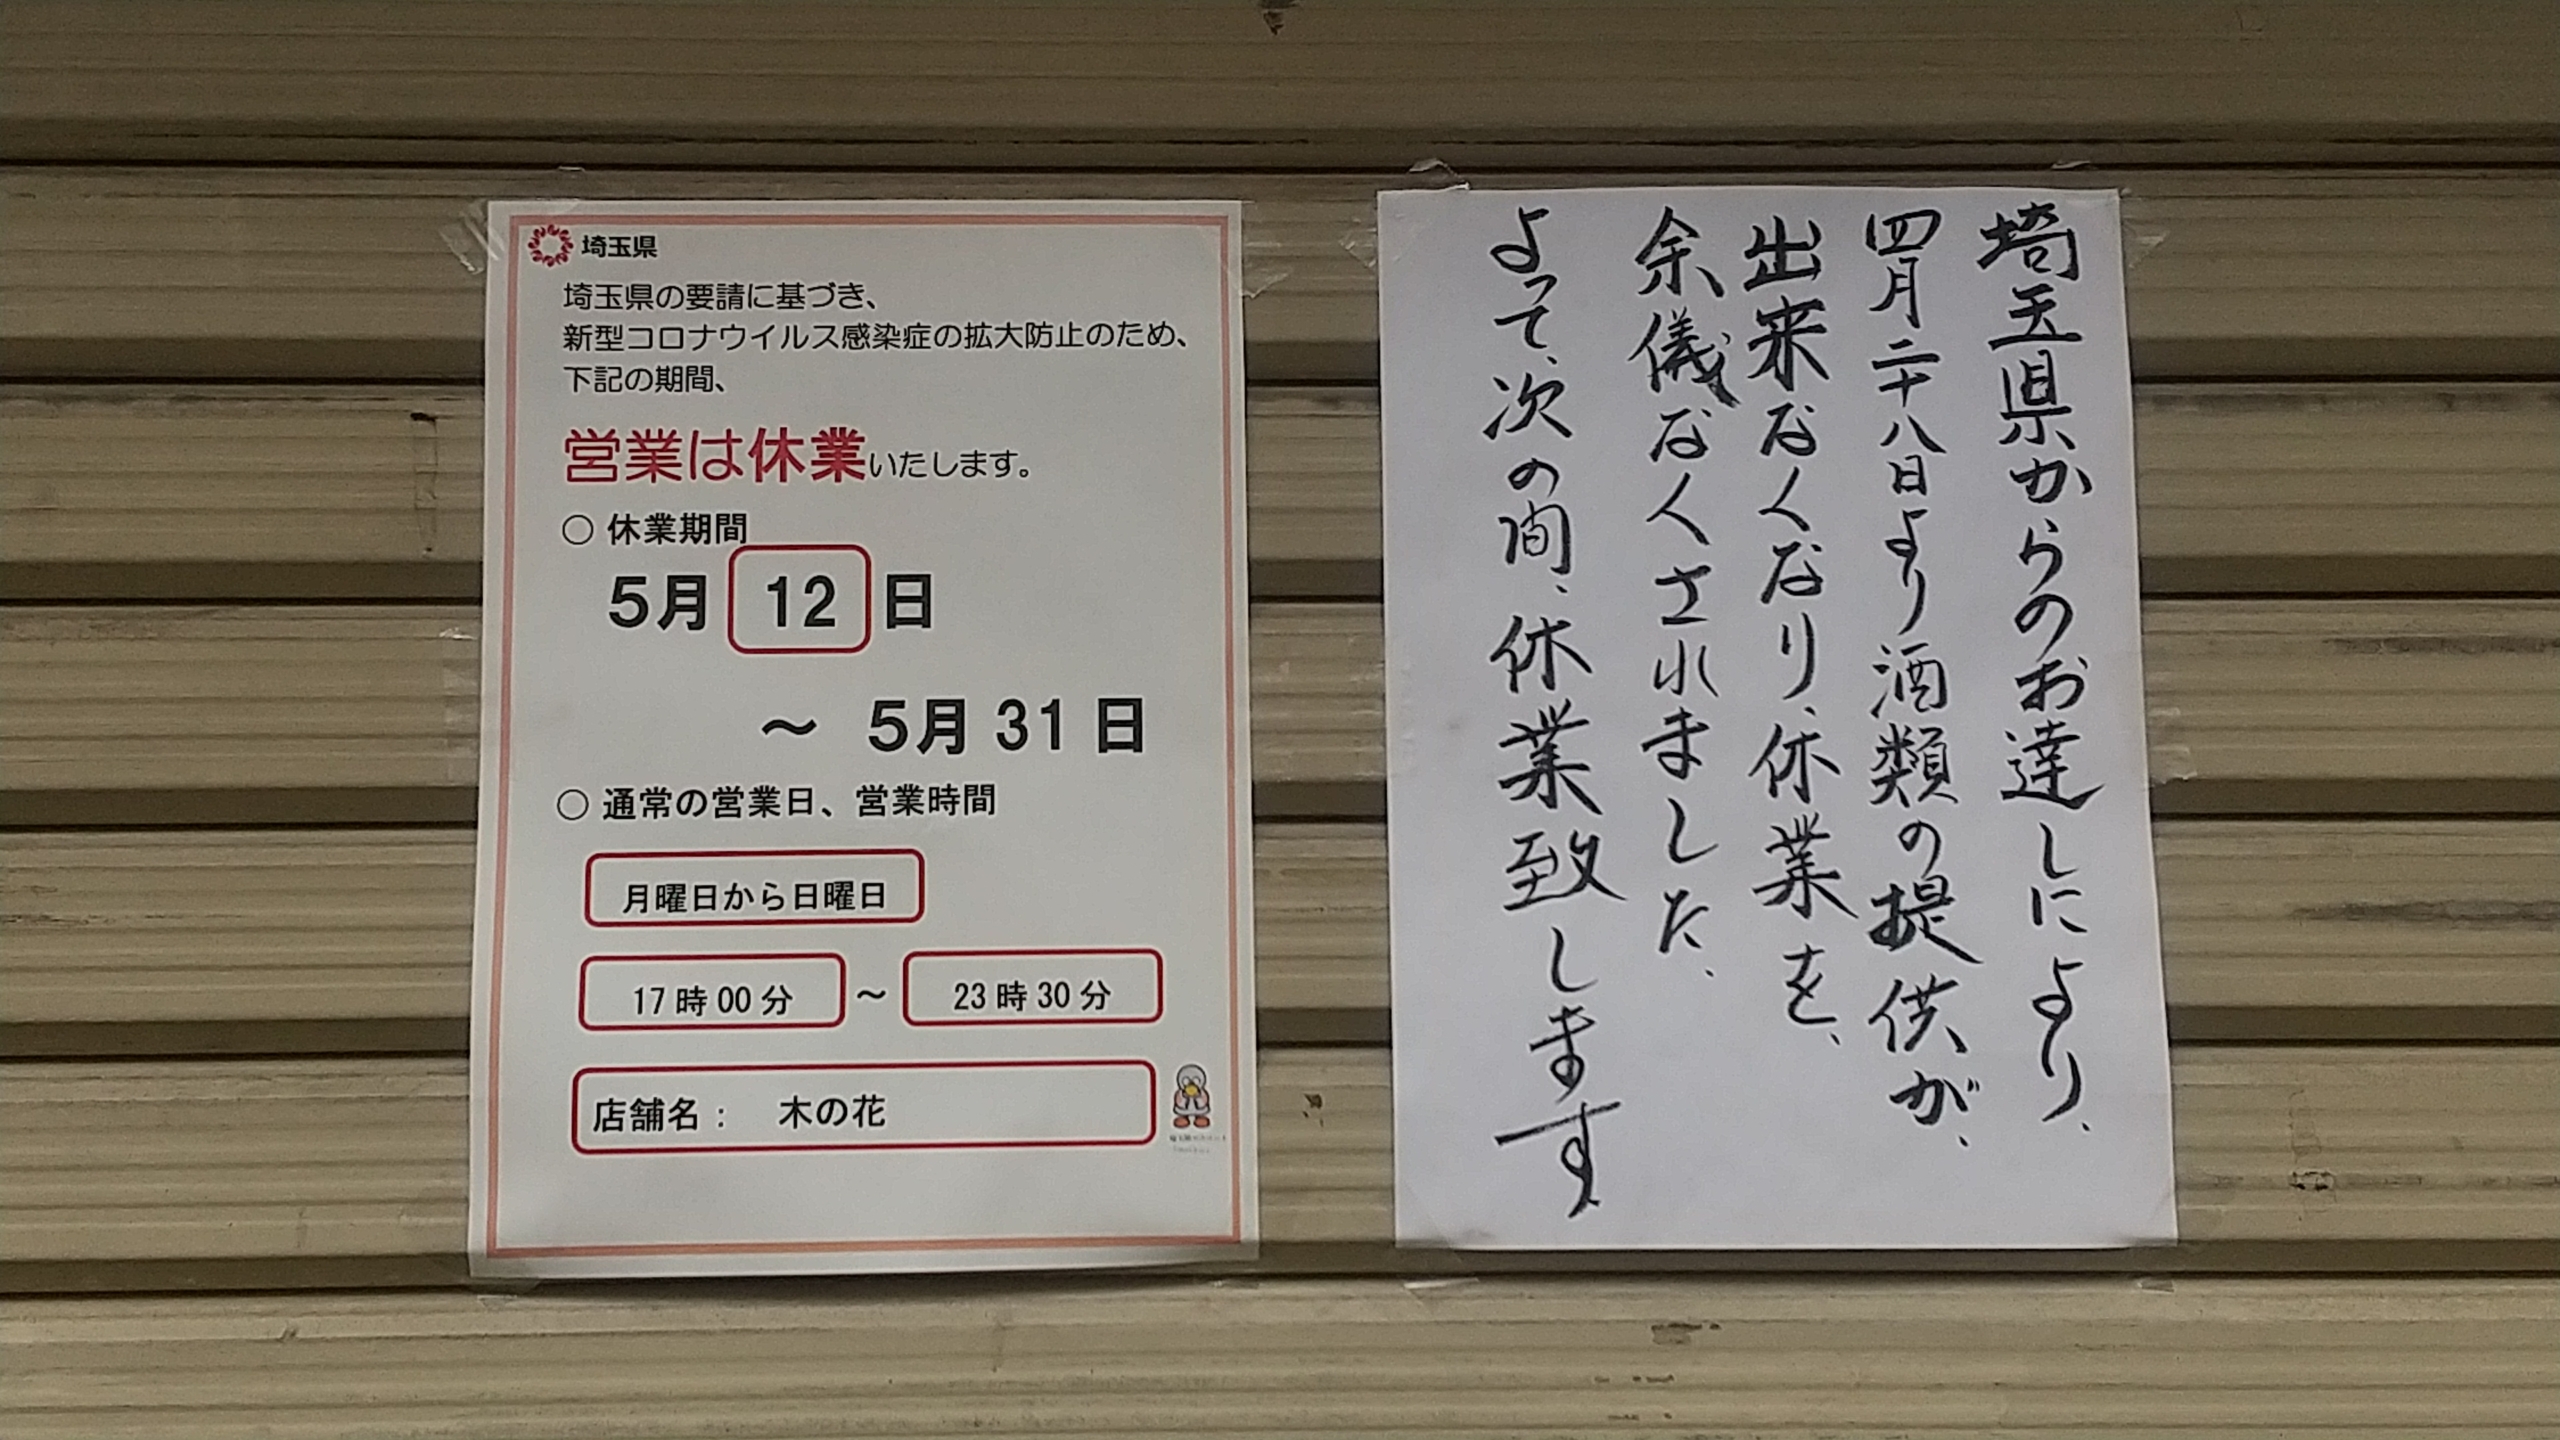 埼玉県
埼玉県の要請に基づき、
新型コロナウイルス感染症の拡大防止のため、
下記の期間、
営業は休業いたします。
○ 休業期間
5月 12 日
～ 5月 31 日
○ 通常の営業日、営業時間
月曜日から日曜日
17 時 00 分 ～ 23 時 30 分
店舗名： 木の花
埼玉県からのお達しにより、
四月二十八日より酒類の提供が、
出来なくなり、休業を、
余儀なくされました、
よって、次の間、休業致します